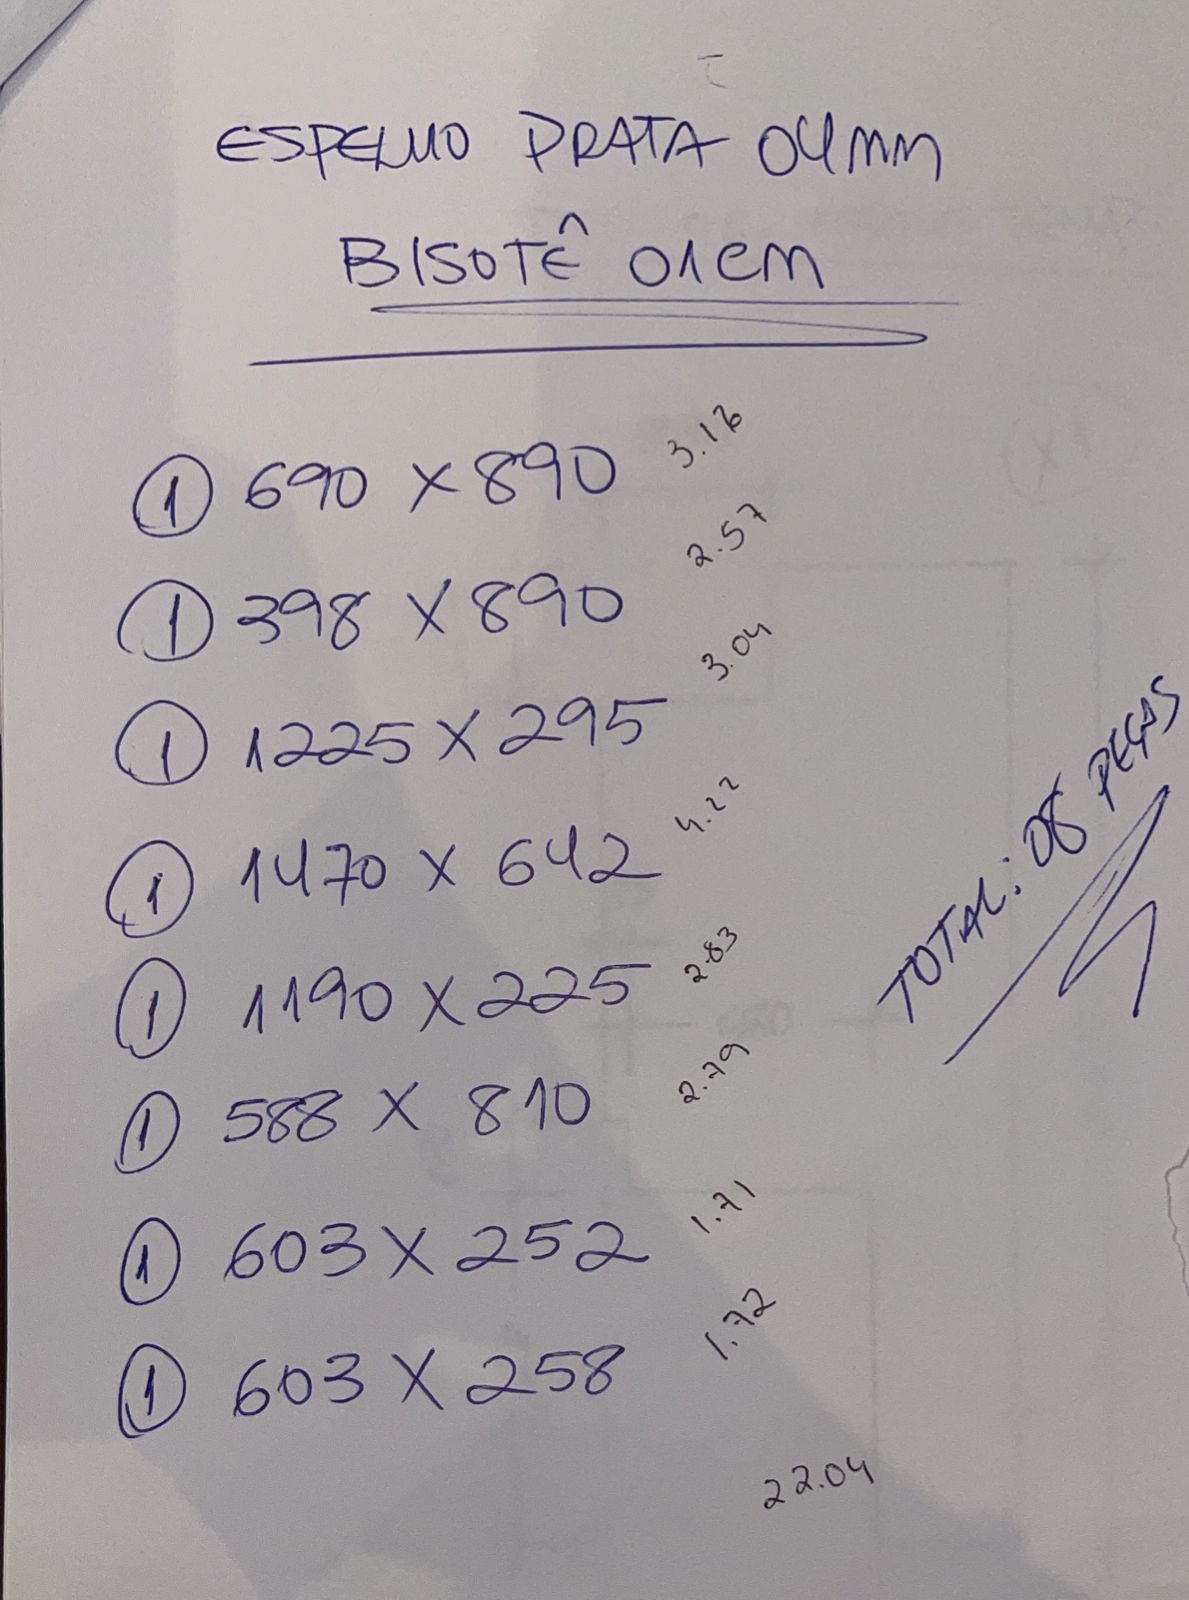 ESPELHO PRATA 04mm
BISOTÊ 01cm
1 690 X 890 3.16
1 398 X 890 2.57
1 1225 X 295 3.04
1 1470 X 642 4.22
1 1190 X 225 2.83
1 588 X 810 2.79
1 603 X 252 1.71
1 603 X 258 1.72
TOTAL: 08 PEÇAS
22.04